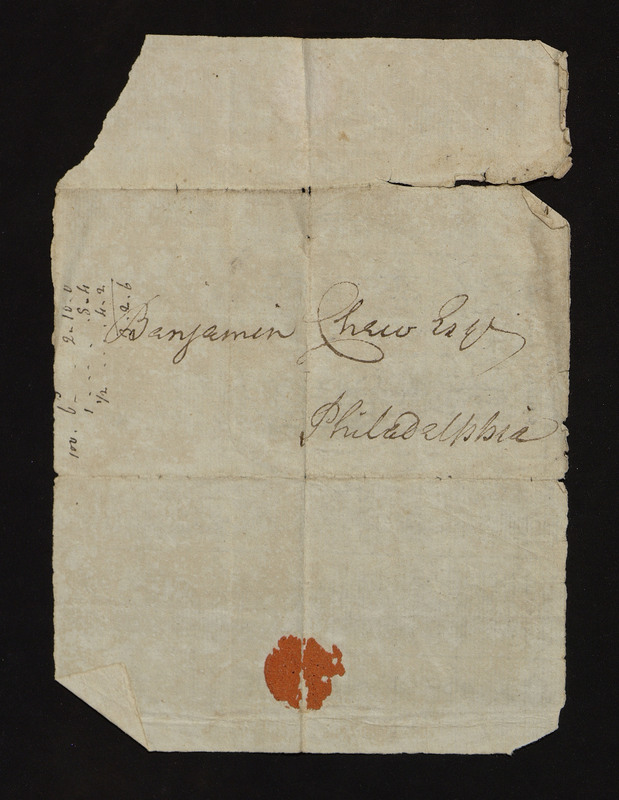 Benjamin Chew Esqr
Philadelphia
100. 6
2 - 10 - 0
1 - . . . 8 - 4
1/2 . . . 4 - 2
2 . 6